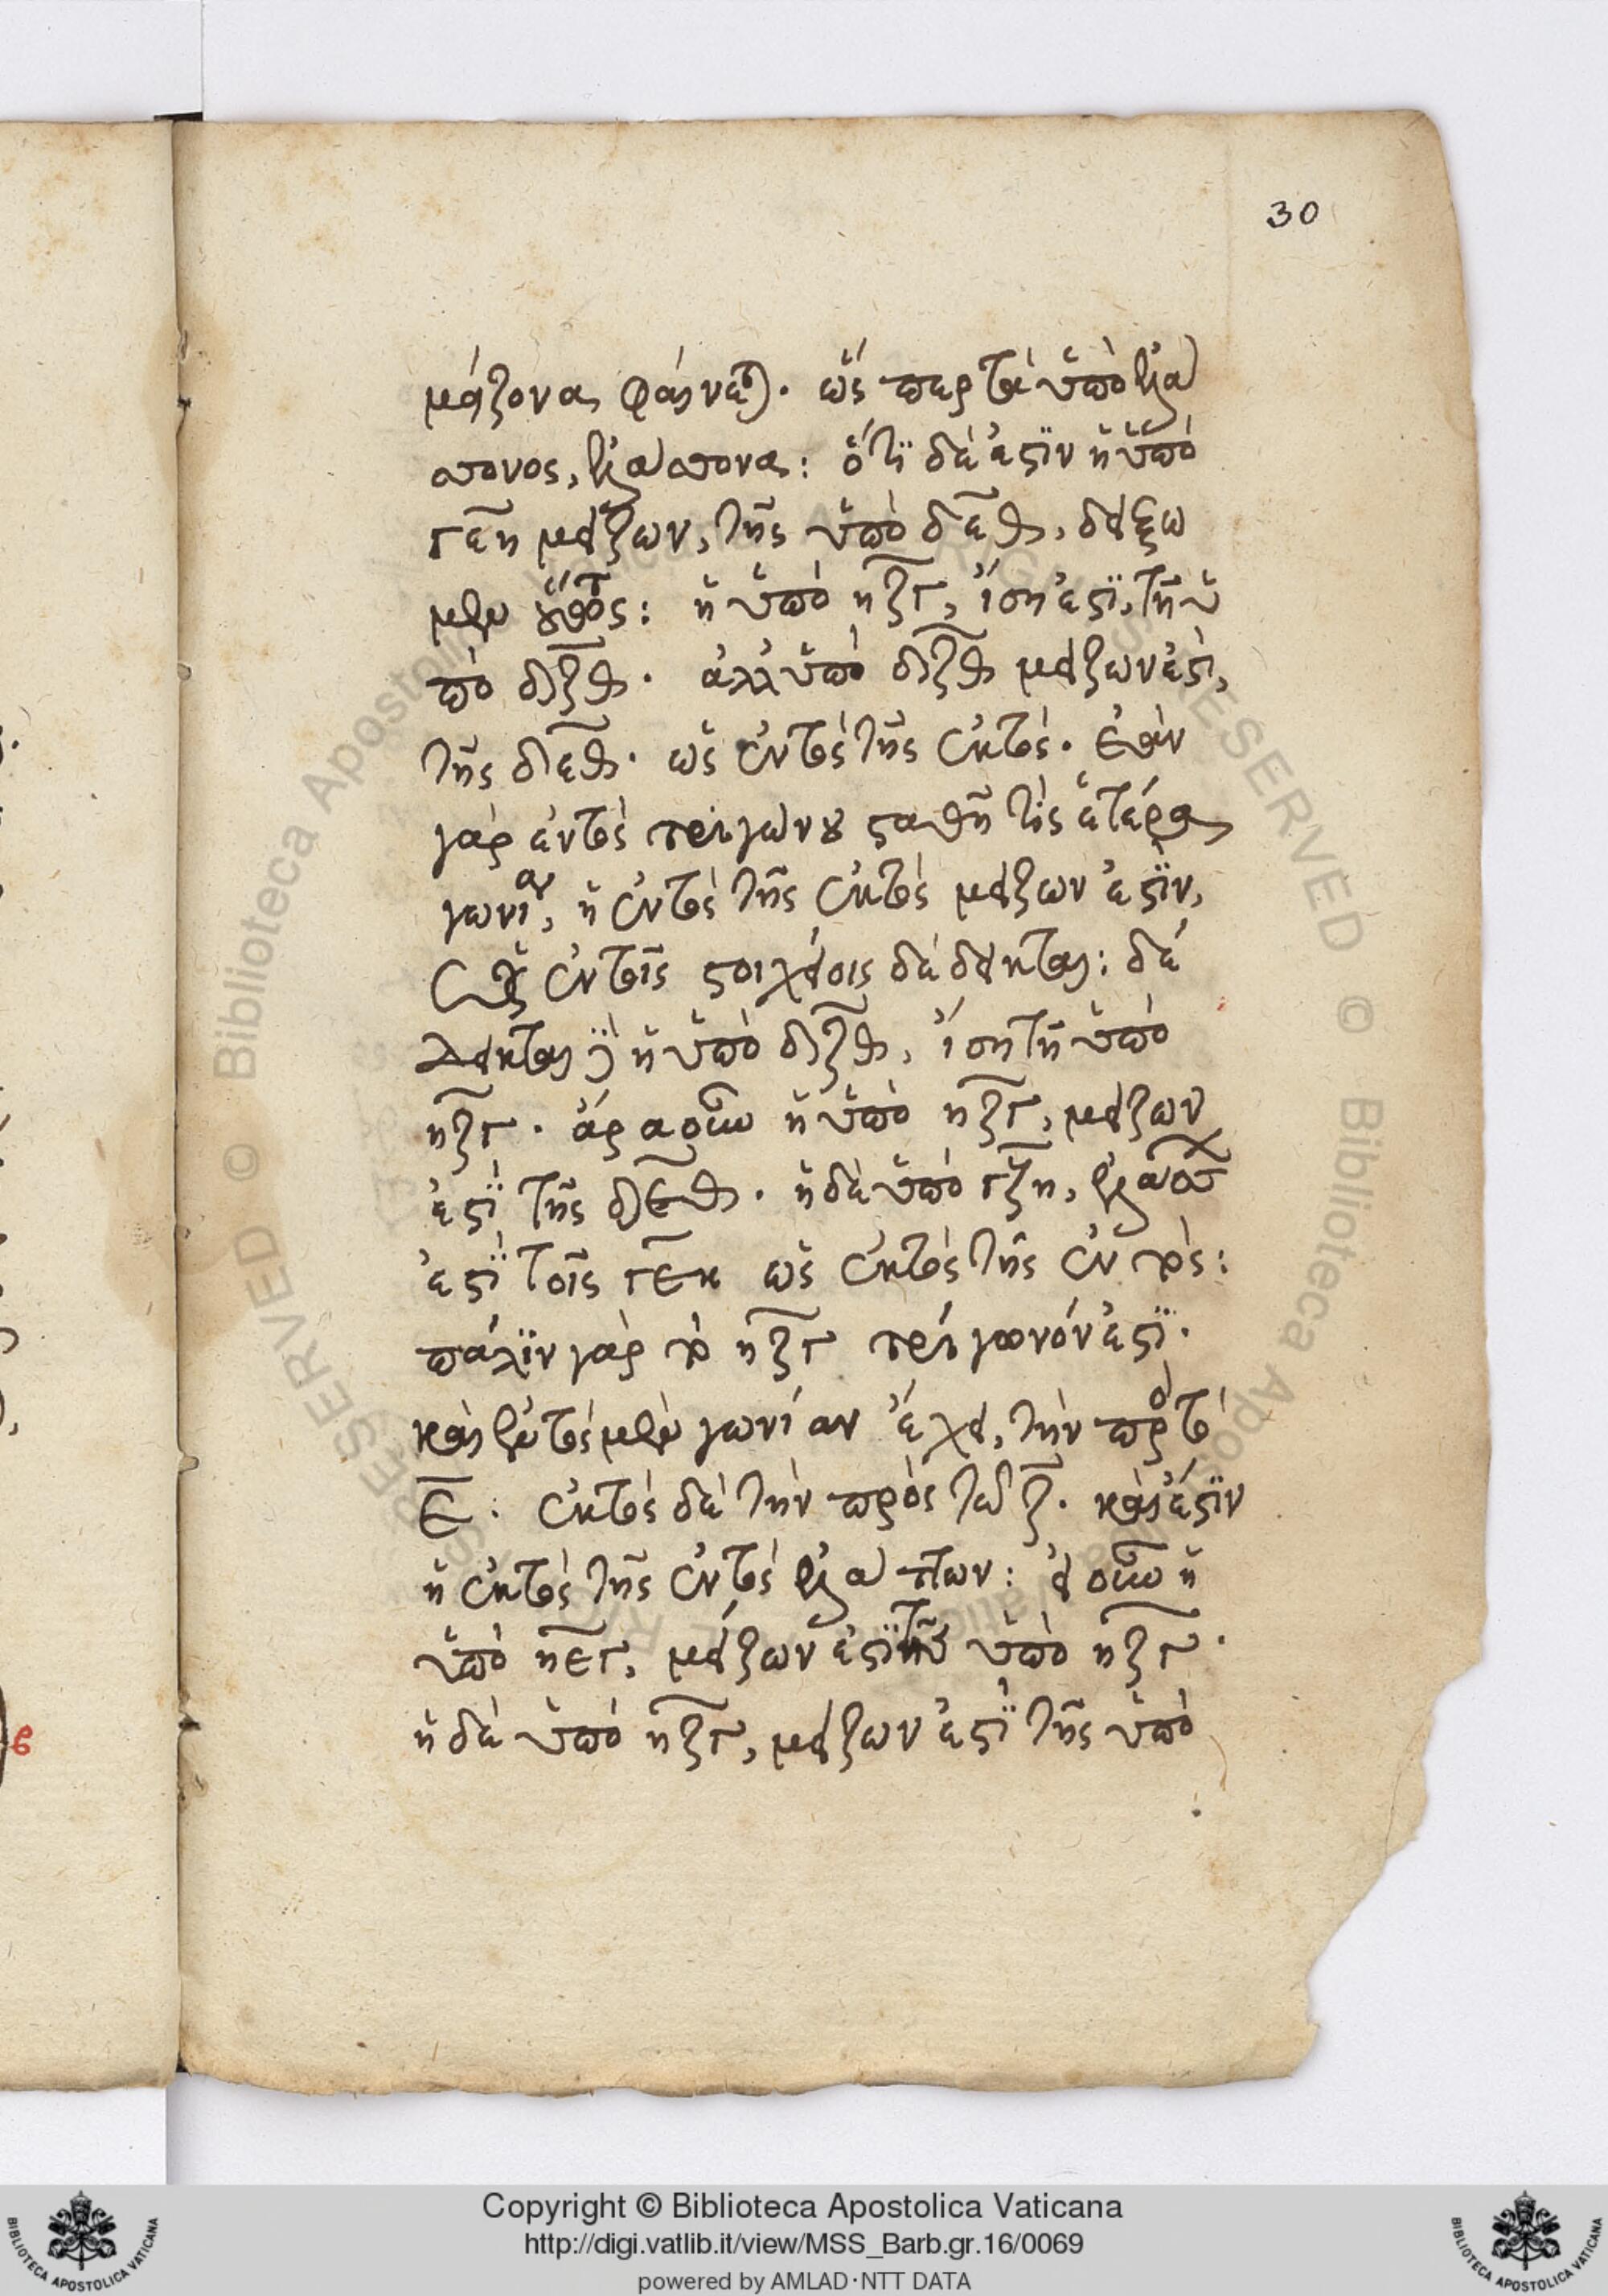 30
μείζονα φαίνεται. ὥς περ τὰ ὑπὸ ἐλάτ
τονος, ἐλάττονα: ὅτι δέ ἐστιν ἡ ὑπὸ
γεη μείζων, τῆς ὑπὸ δεθ, δείξω
μεν οὕτως: ἡ ὑπὸ ηζγ, ἴση ἐστὶ, τῇ ὑ
πὸ δζθ. ἀλλ ὑπὸ δζθ μείζων ἐστὶ,
τῆς δεθ. ὡς ἐντὸς τῆς ἐκτός. ἐὰν
γὰρ ἐντὸς τριγώνου σταθῇ τὶς ἑτέρα
γωνία, ἡ ἐντὸς τῆς ἐκτὸς μείζων ἐστὶν,
ὡς ἐν τοῖς στοιχείοις δέδεικται: δέ
δεικται γὰρ ἡ ὑπὸ δζθ, ἴση τῇ ὑπὸ
ηζγ. ἄρα οὖν ἡ ὑπὸ ηζγ, μείζων
ἐστὶ τῆς δεθ. ἡ δὲ ὑπὸ γζη,
ἐστὶ τοῖς γεκ ὡς ἐκτὸς τῆς ἐντός:
πάλιν γὰρ τὸ ηζγ τρίγωνόν ἐστι.
καὶ ἐντὸς μὲν γωνίαν ἔχει, τὴν πρὸς τὸ
ε. ἐκτὸς δὲ τὴν πρὸς τῶ ζ. καὶ ἔστιν
ἡ ἐκτὸς τῆς ἐντὸς ἐλάττων: εἰ οὖν ἡ
ὑπὸ ηεγ, μείζων ἐστὶ τῆς ὑπὸ ηζγ.
ἡ δὲ ὑπὸ ηζγ, μείζων ἐστὶ τῆς ὑπὸ
Copyright © Biblioteca Apostolica Vaticana
http://digi.vatlib.it/view/MSS_Barb.gr.16/0069
powered by AMLAD·NTT DATA